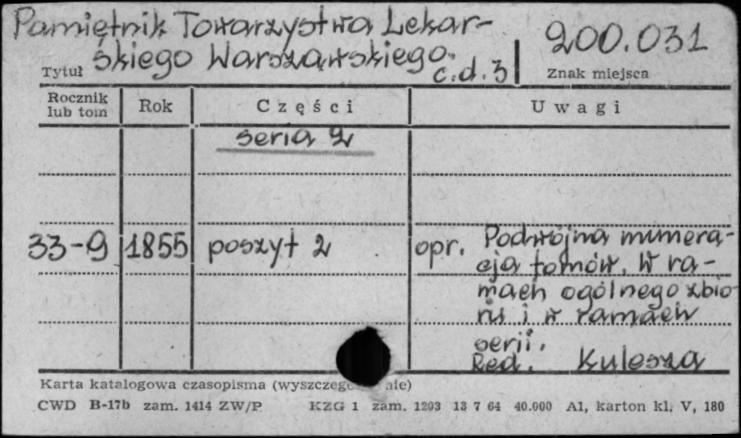 Pamiętnik Towarzystwa Lekar-
skiego Warszawskiego. c.d.3
200.031
Tytuł
Znak miejsca
Rocznik lub tom
Rok
Części
Uwagi
seria 2
33-9
1855
poszyt 2
opr.
Podwójna numera-
cja tomów. W ra-
mach ogólnego zbio-
ru i w ramach
serii.
Red. Kulesza
Karta katalogowa czasopisma
CWD B-17b zam. 1414 ZW/P KZG 1 zam. 1203 13 7 64 40.000 A1, karton kl. V, 180